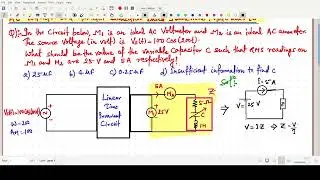 Q): In the Circuit below, M1 is an ideal AC Voltmeter and M2 is an ideal AC ammeter.
The source Voltage (in volt) is Vs(t) = 100 Cos(200t).
What should be the value of the Variable Capacitor C such that RMS readings on
M1 and M2 are 25 V and 5 A respectively?
a) 25 μF b) 4 μF c) 0.25 μF d) Insufficient information to find C
Linear
Time
Invariant
Circuit
5A
M2
M1
25V
Z
5Ω
C
1H
Sol:
I=5A
V=
25V
Z
V=IZ ⇒ Z=V/I